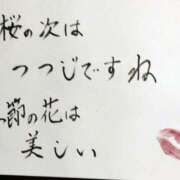 桜の次は
つつじですね
節の花は
美しい